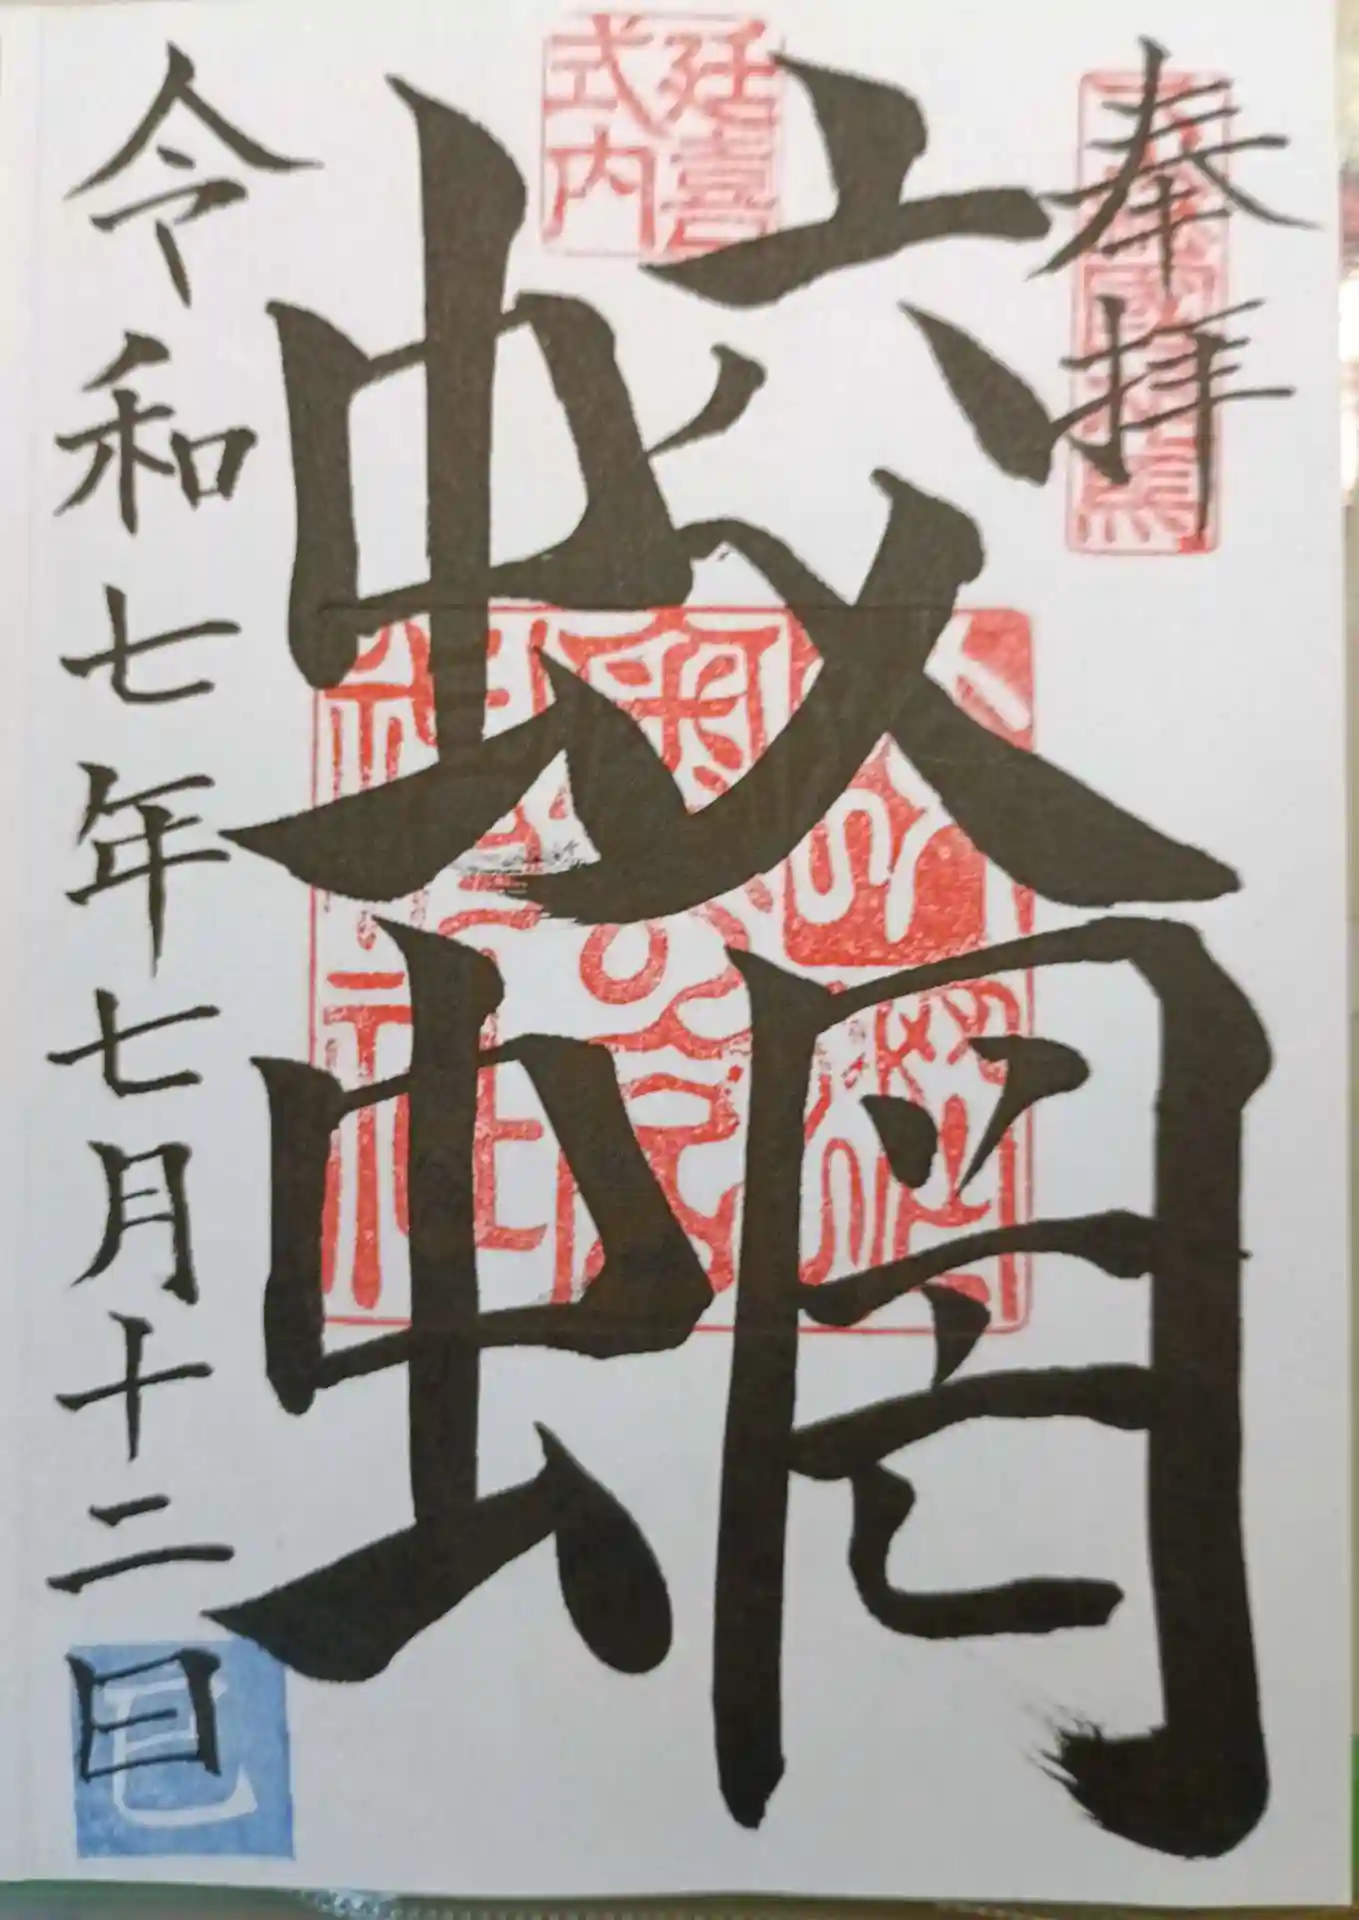 奉拝
延喜
式内
蛟蝄
令和七年七月十二日
巳